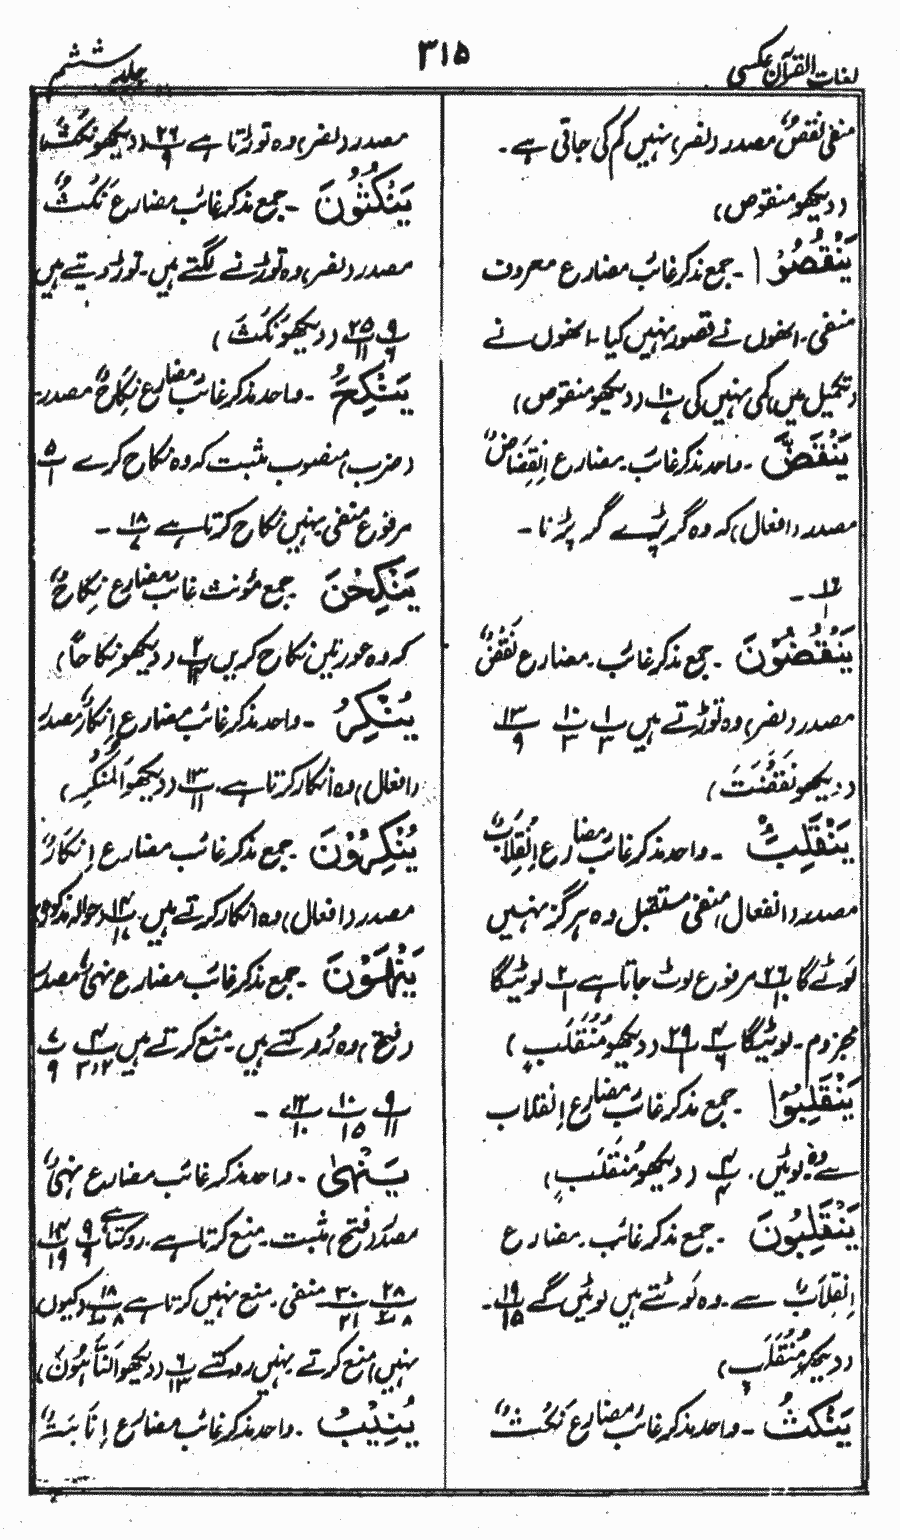 لغات القرآن عکسی
۳۱۵
جلد ششم
منفی نَقْصٌ مصدر (نصر) نہیں کم کی جاتی ہے۔
(دیکھو منقوص)
يَنْقُصُوْا ۔ جمع مذکر غائب مضارع معروف
منفی۔ انھوں نے قصور نہیں کیا۔ انھوں نے
تکمیل میں کمی نہیں کی ۱۰ (دیکھو منقوص)
يَنْقَضَّ ۔ واحد مذکر غائب۔ مضارع اِنْقِضَاضٌ
مصدر (افعال) کہ وہ گر پڑے گر پڑنا ۔
۱۶ ۔
يَنْقُضُوْنَ ۔ جمع مذکر غائب۔ مضارع نَقْضٌ
مصدر (نصر) وہ توڑتے ہیں ۱/۳ ۱۰/۳ ۱۳/۹
(دیکھو نَقَضَتْ)
يَنْقَلِبُ ۔ واحد مذکر غائب مضارع اِنْقِلَابٌ
مصدر (انفعال) منفی مستقبل وہ ہرگز نہیں
لوٹے گا ۲۶ مرفوع لوٹ جاتا ہے ۲/۱ لوٹیگا
مجزوم۔ لوٹیگا ۴/۶ ۲۹/۱ (دیکھو مُنْقَلَبٍ)
يَنْقَلِبُوْا ۔ جمع مذکر غائب مضارع اِنقلاب
سے وہ لوٹیں۔ ۴/۴ (دیکھو مُنْقَلَبٍ)
يَنْقَلِبُوْنَ ۔ جمع مذکر غائب۔ مضارع
اِنْقِلَابٌ سے۔ وہ لَوٹتے ہیں لوٹیں گے ۱۹/۱۵ ۔
(دیکھو مُنْقَلَبٍ)
يَنْكُثُ ۔ واحد مذکر غائب مضارع نَكْثٌ
مصدر (نصر) وہ توڑتا ہے ۲۶/۹ (دیکھو نَكَثَ)
يَنْكُثُوْنَ ۔ جمع مذکر غائب مضارع نَكْثٌ
مصدر (نصر) وہ توڑنے لگتے ہیں۔ توڑ دیتے ہیں
۹/۶ ۲۵/۱۱ (دیکھو نَكَثَ)
يَنْكِحُ ۔ واحد مذکر غائب مضارع نِكَاحٌ مصدر
(ضرب) منصوب مثبت کہ وہ نکاح کرے ۵/۱
مرفوع منفی نہیں نکاح کرتا ہے ۱۸/۷ ۔
يَنْكِحْنَ ۔ جمع مؤنث غائب مضارع نِكَاحٌ
کہ وہ عورتیں نکاح کریں ۲/۱۴ (دیکھو نکاحاً)
يُنْكِرُ ۔ واحد مذکر غائب مضارع اِنْكَارٌ مصدر
(افعال) وہ انکار کرتا ہے۔ ۱۳/۱۱ (دیکھو اَلْمُنْكَرِ)
يُنْكِرُوْنَ ۔ جمع مذکر غائب مضارع اِنْكَارٌ
مصدر (افعال) وہ انکار کرتے ہیں۔ ۱۴ (حوالہ مذکور)
يَنْهَوْنَ ۔ جمع مذکر غائب مضارع نَهْیٌ مصدر
(فتح) وہ رُوکتے ہیں۔ منع کرتے ہیں ۴/۳،۲ ۷/۹
۹/۱۱ ۱۰/۱۵ ۱۲/۱۰ ۔
يَنْهٰى ۔ واحد مذکر غائب مضارع نَهْیٌ
مصدر (فتح) مثبت۔ منع کرتا ہے۔ روکتا ہے ۹/۹ ۱۴/۱۹
۲۸/۸ ۳۰/۲۱ منفی۔ منع نہیں کرتا ہے ۱۸/۸ (کیوں
نہیں) منع کرتے نہیں روکتے ۶/۱۳ (دیکھو اَلنَّاهُوْنَ)
يُنِيْبُ ۔ واحد مذکر غائب مضارع اِنَابَةٌ